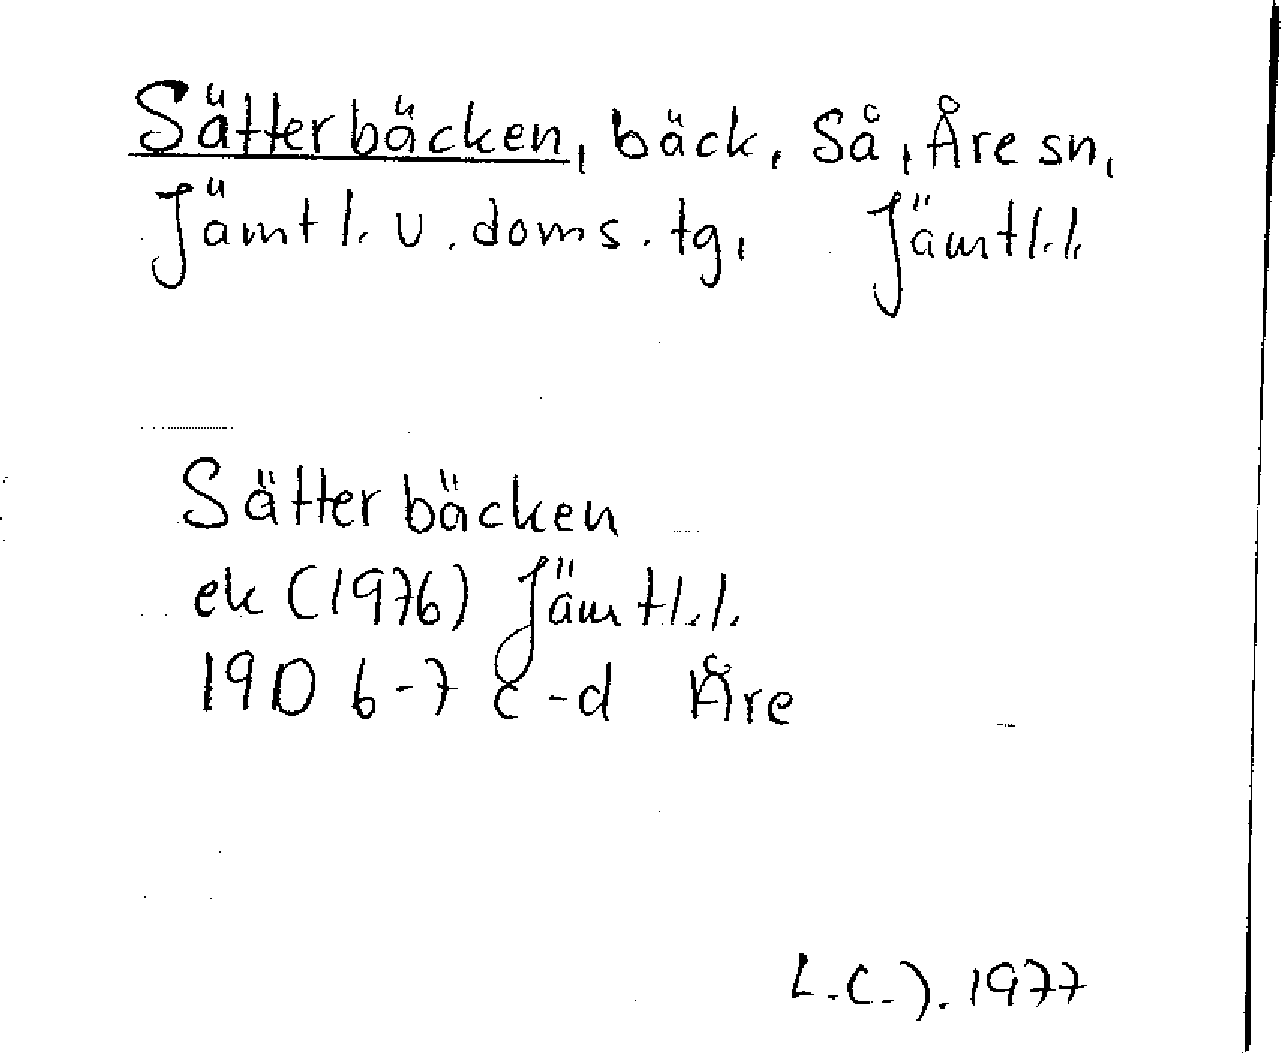 Sätterbäcken, bäck, Så, Åre sn,
Jämtl. v. doms. tg, Jämtl.l.
Sätterbäcken
ek (1976) Jämtl.l.
19D 6-7 c-d Åre
L.C.J. 1977